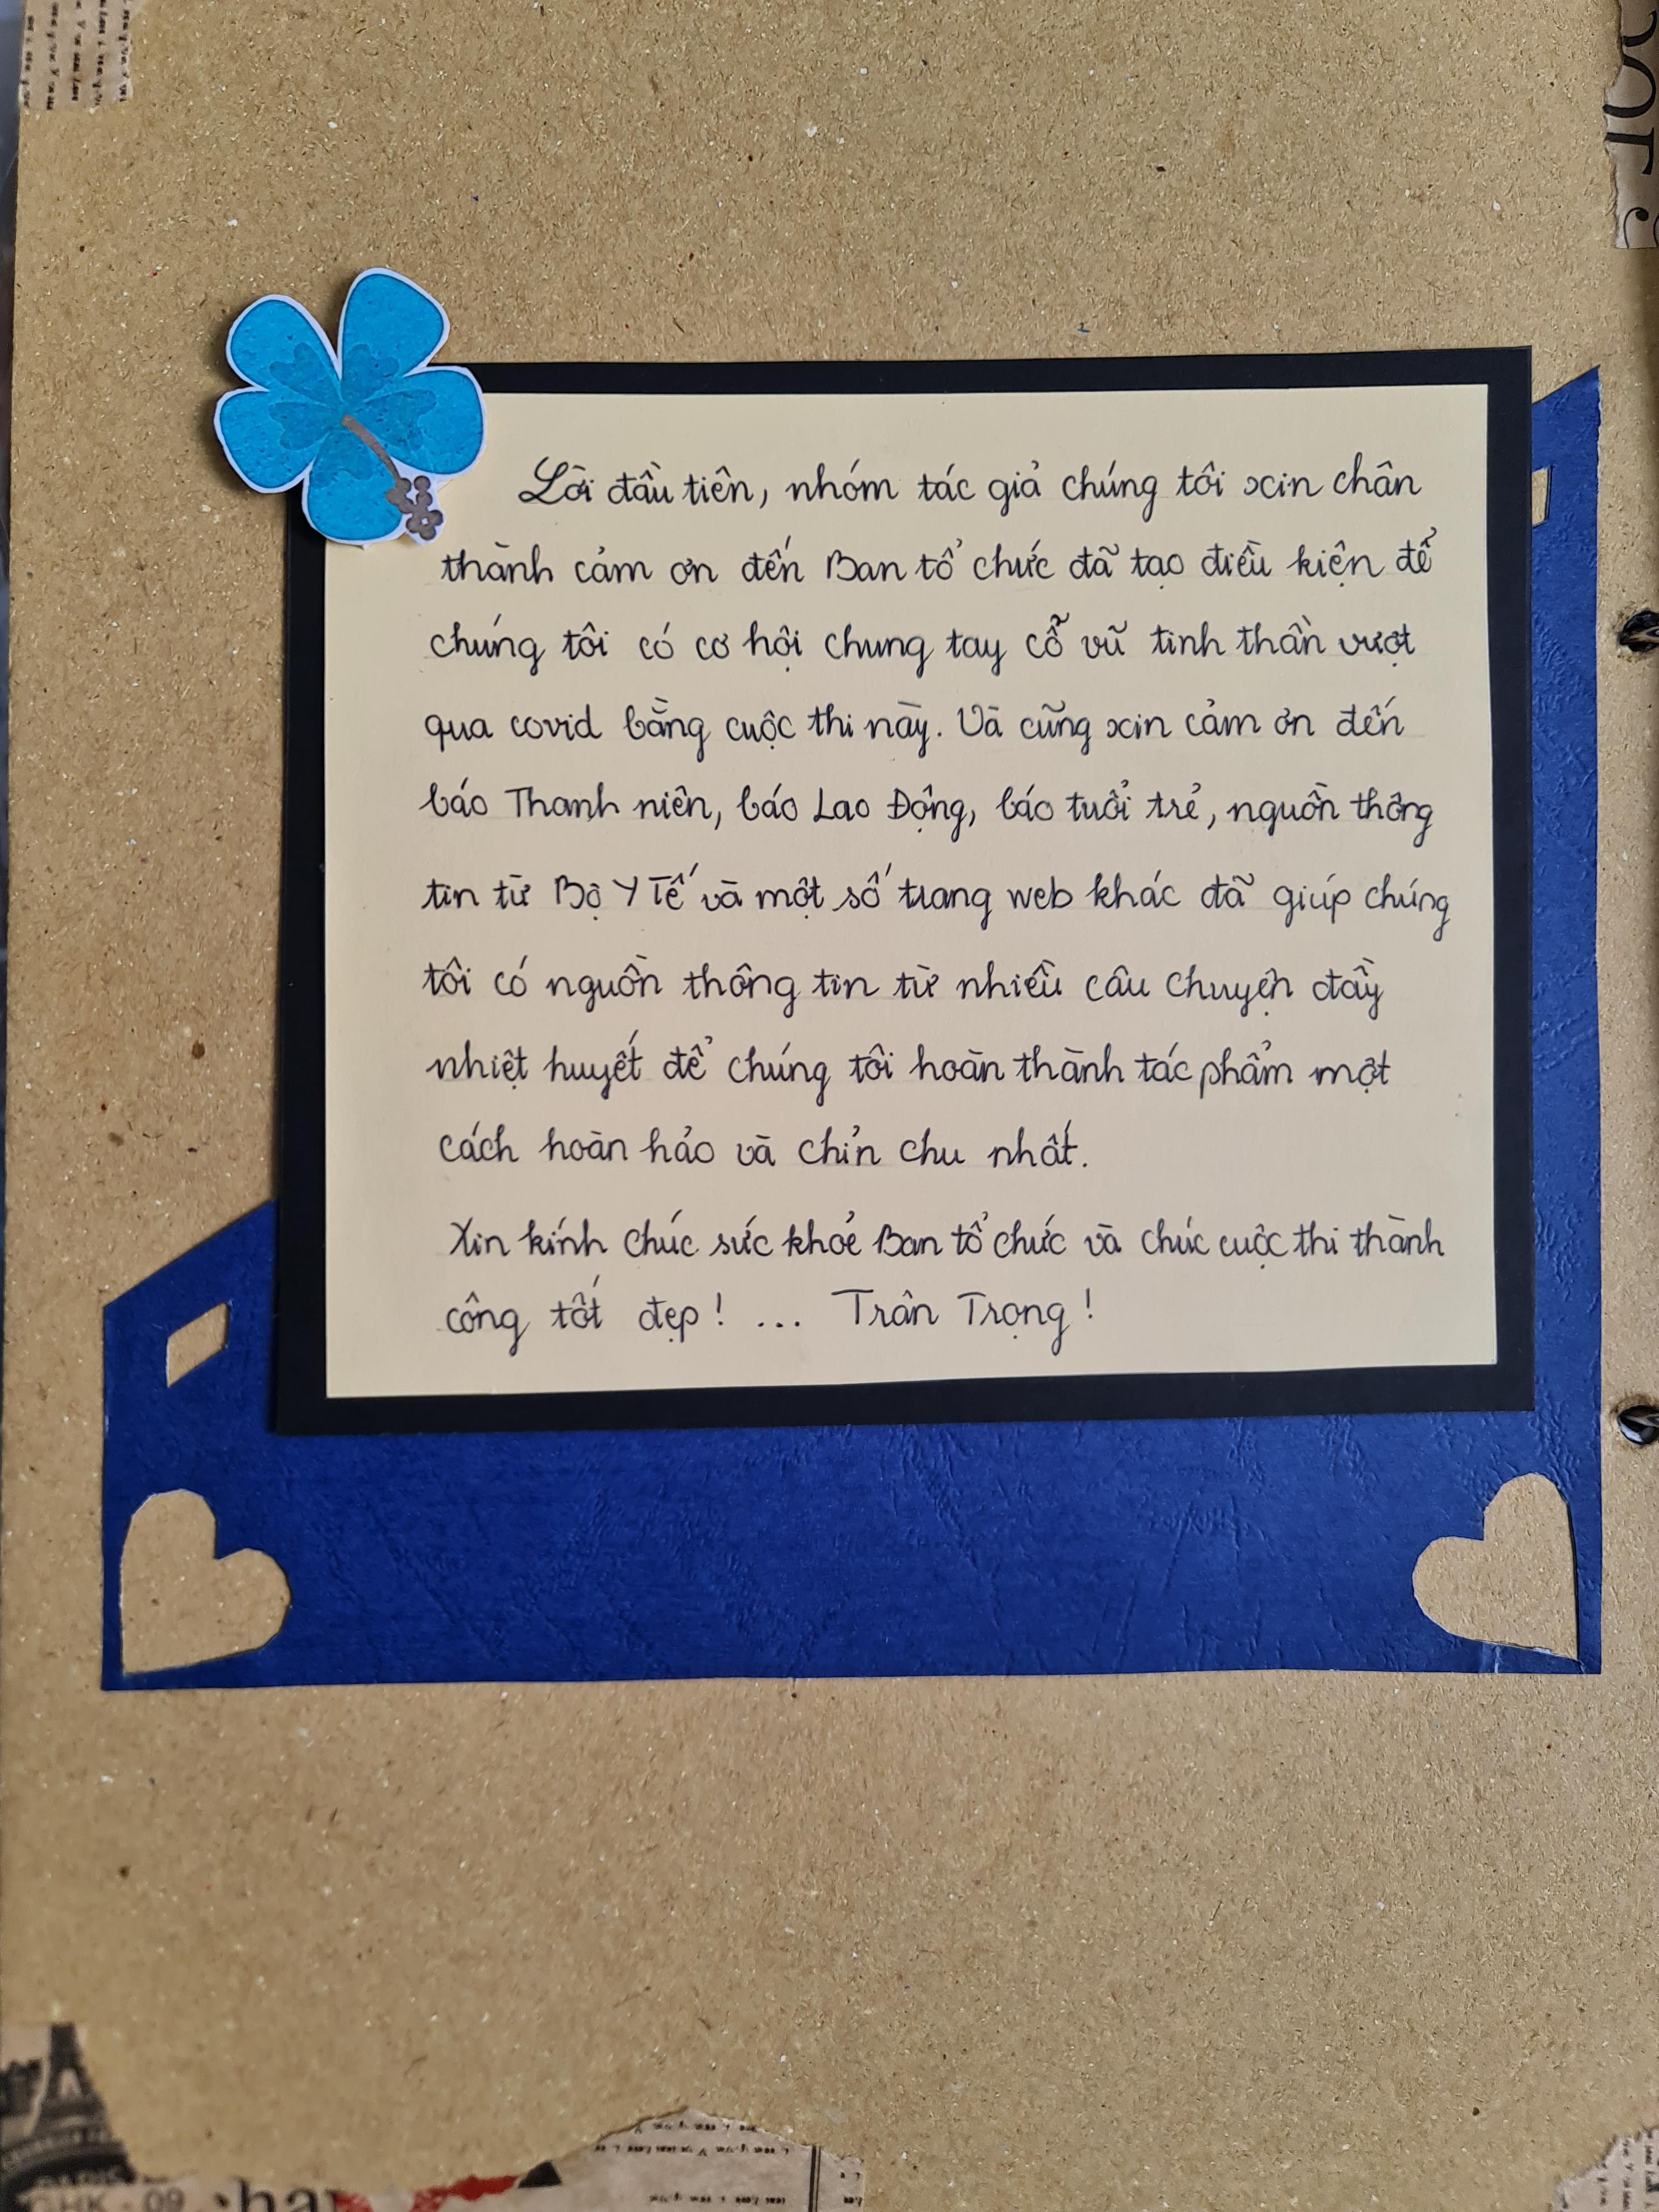 Lời đầu tiên, nhóm tác giả chúng tôi xin chân
thành cảm ơn đến Ban tổ chức đã tạo điều kiện để
chúng tôi có cơ hội chung tay cỗ vũ tinh thần vượt
qua covid bằng cuộc thi này. Và cũng xin cảm ơn đến
báo Thanh niên, báo Lao Động, báo tuổi trẻ, nguồn thông
tin từ Bộ Y Tế và một số trang web khác đã giúp chúng
tôi có nguồn thông tin từ nhiều câu chuyện đầy
nhiệt huyết để chúng tôi hoàn thành tác phẩm một
cách hoàn hảo và chỉn chu nhất.
Xin kính chúc sức khoẻ Ban tổ chức và chúc cuộc thi thành
công tốt đẹp! ... Trân Trọng!